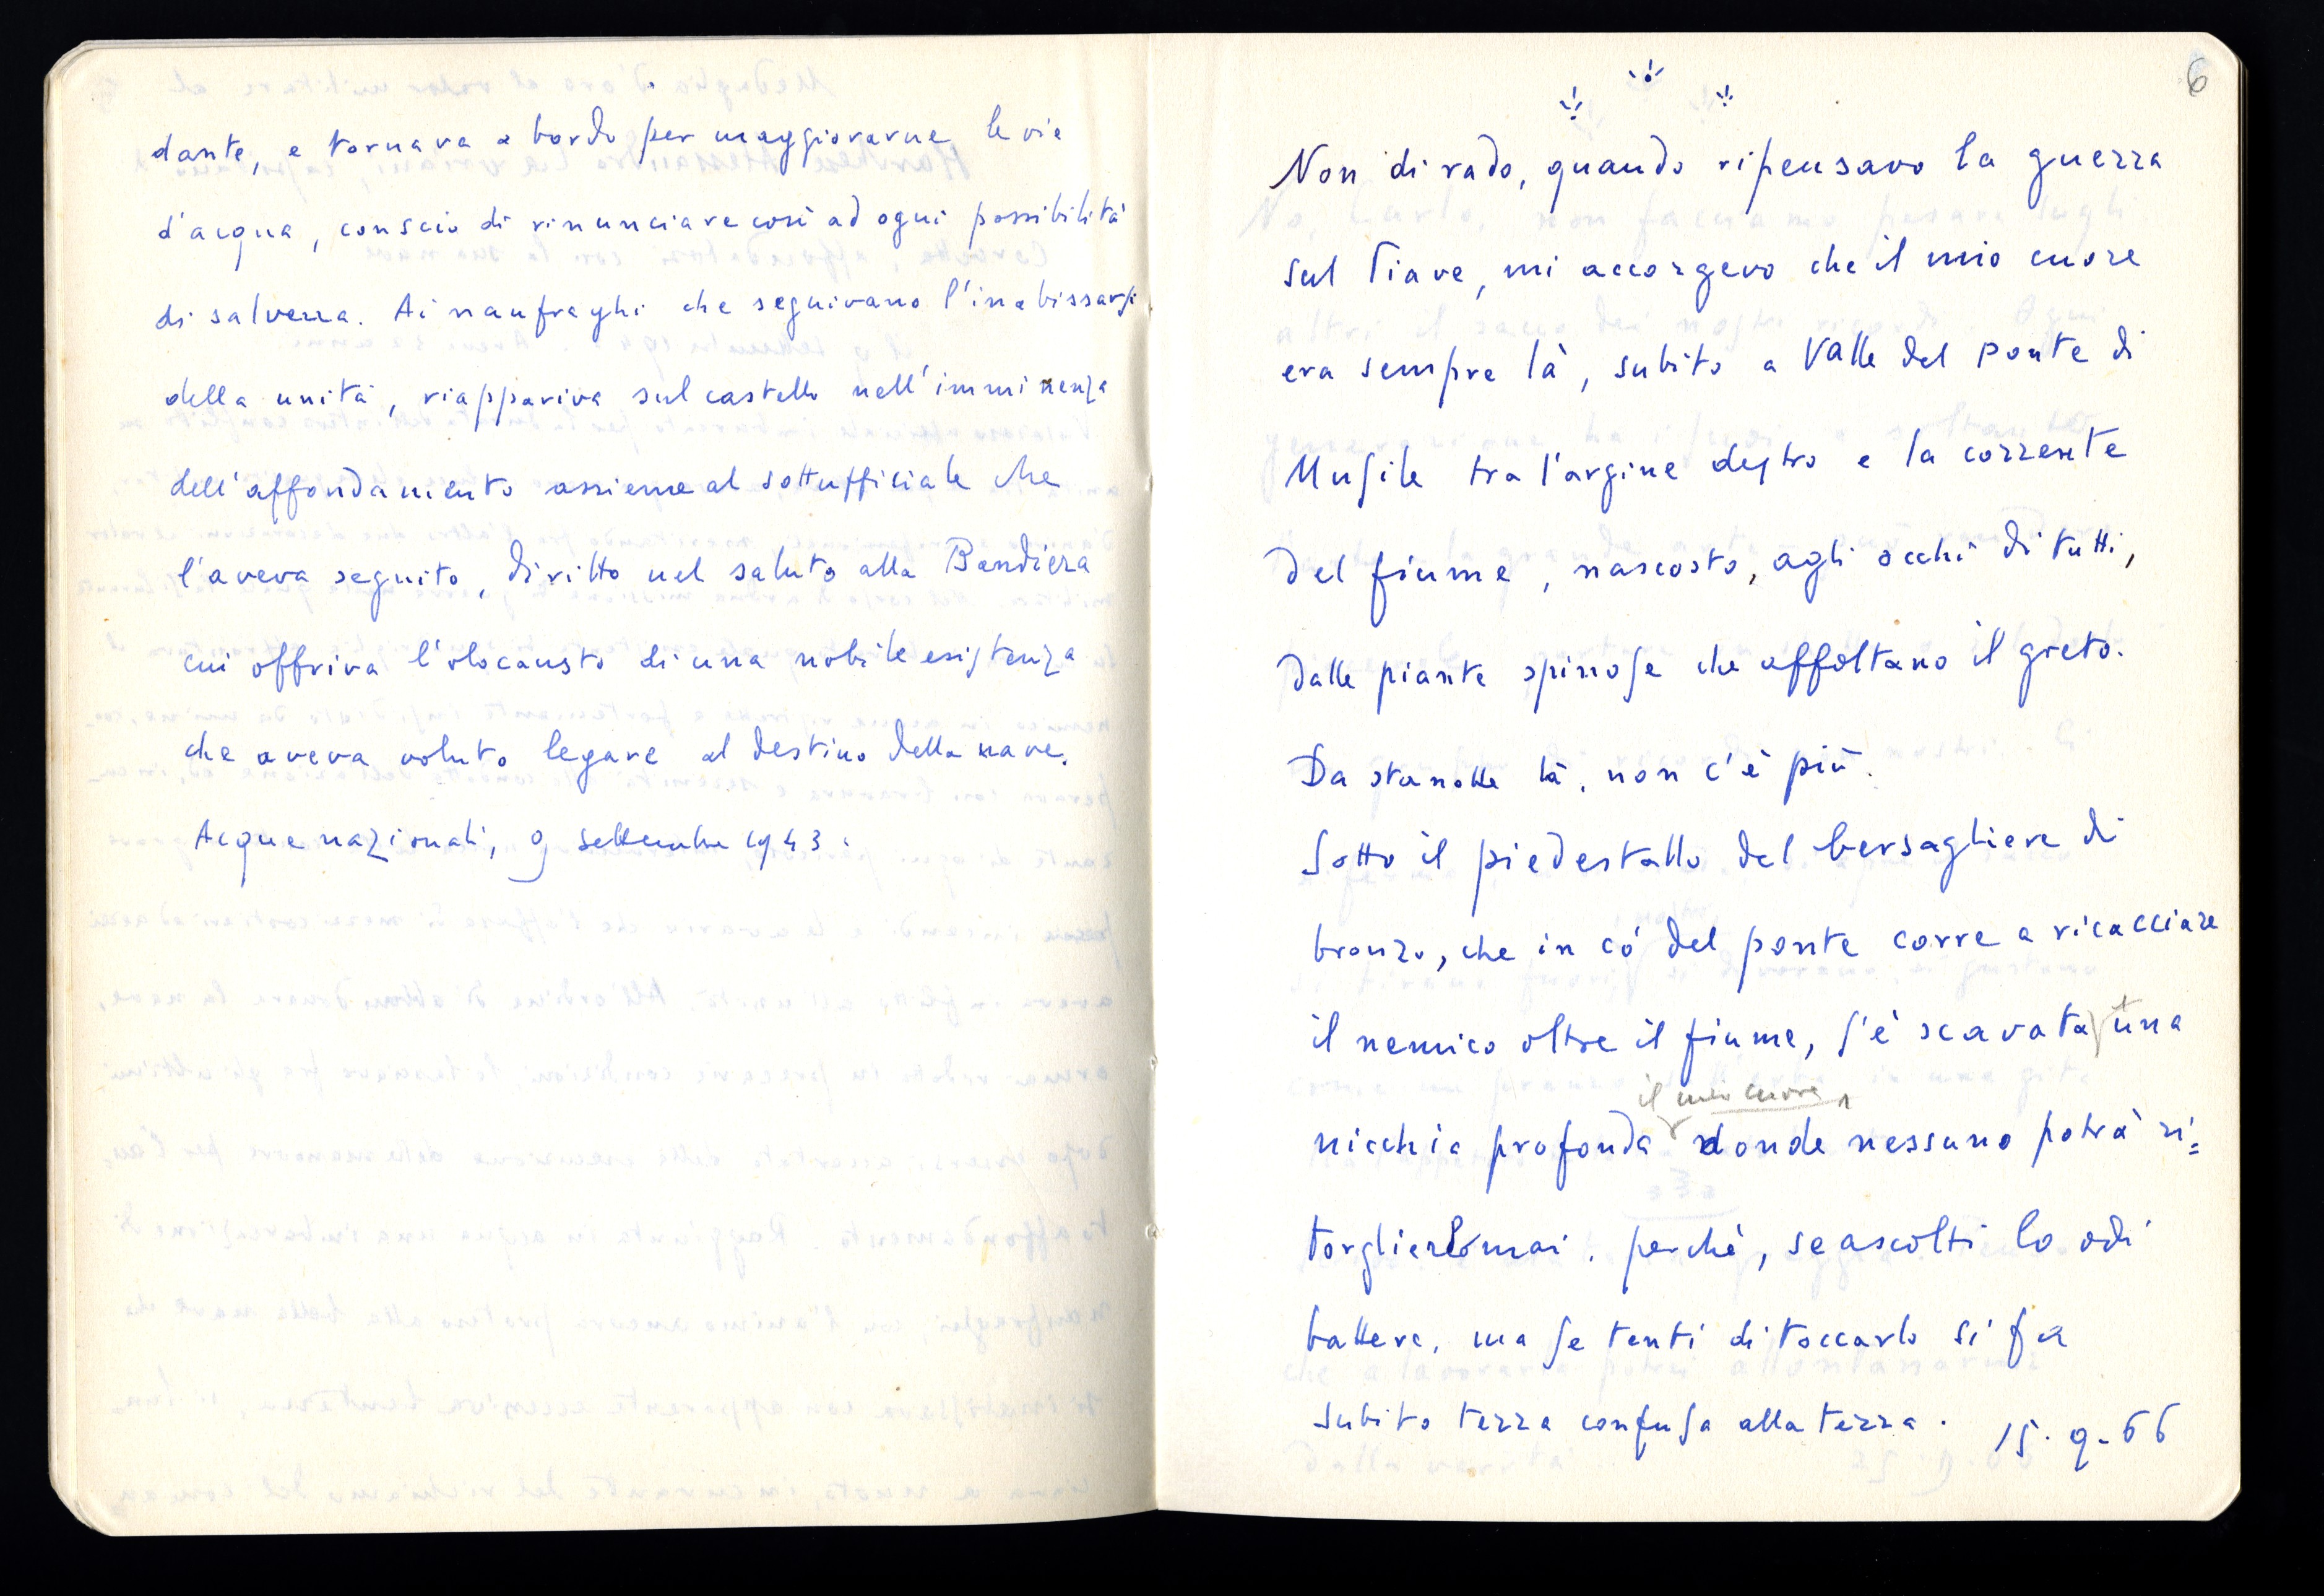 dante, e tornava a bordo per maggiorarne le vie
d'acqua, conscio di rinunciare così ad ogni possibilità
di salvezza. Ai naufraghi che seguivano l'inabissarsi
della unità, riappariva sul castello nell'imminenza
dell'affondamento assieme al sottufficiale che
l'aveva seguito, diritto nel saluto alla Bandiera
cui offriva l'olocausto di una nobile esistenza
che aveva voluto legare al destino della nave.
Acque nazionali, 9 settembre 1943.
6
Non di rado, quando ripensavo la guerra
sul Piave, mi accorgevo che il mio cuore
era sempre là, subito a valle del ponte di
Musile tra l'argine destro e la corrente
del fiume, nascosto, agli occhi di tutti,
dalle piante spinose che affoltano il greto.
Da stanotte là, non c'è più.
Sotto il piedestallo del bersagliere di
bronzo, che in có del ponte corre a ricacciare
il nemico oltre il fiume, s'è scavata una
il mio cuore
nicchia profonda donde nessuno potrà ri=
torglierlo mai. perchè, se ascolti lo odi
battere, ma se tenti di toccarlo si fa
subito terra confusa alla terra. 15.9.66